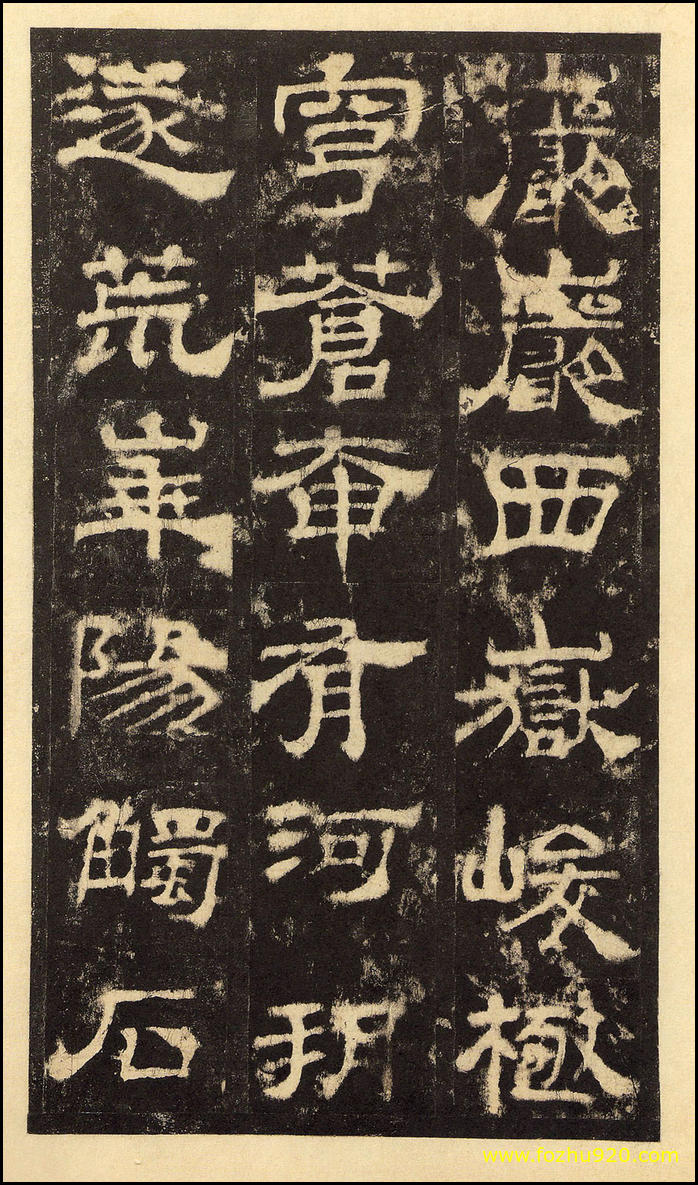 巖巖西嶽峻極
穹蒼奄有河朔
遂荒華陽觸石
www.fozhu920.com